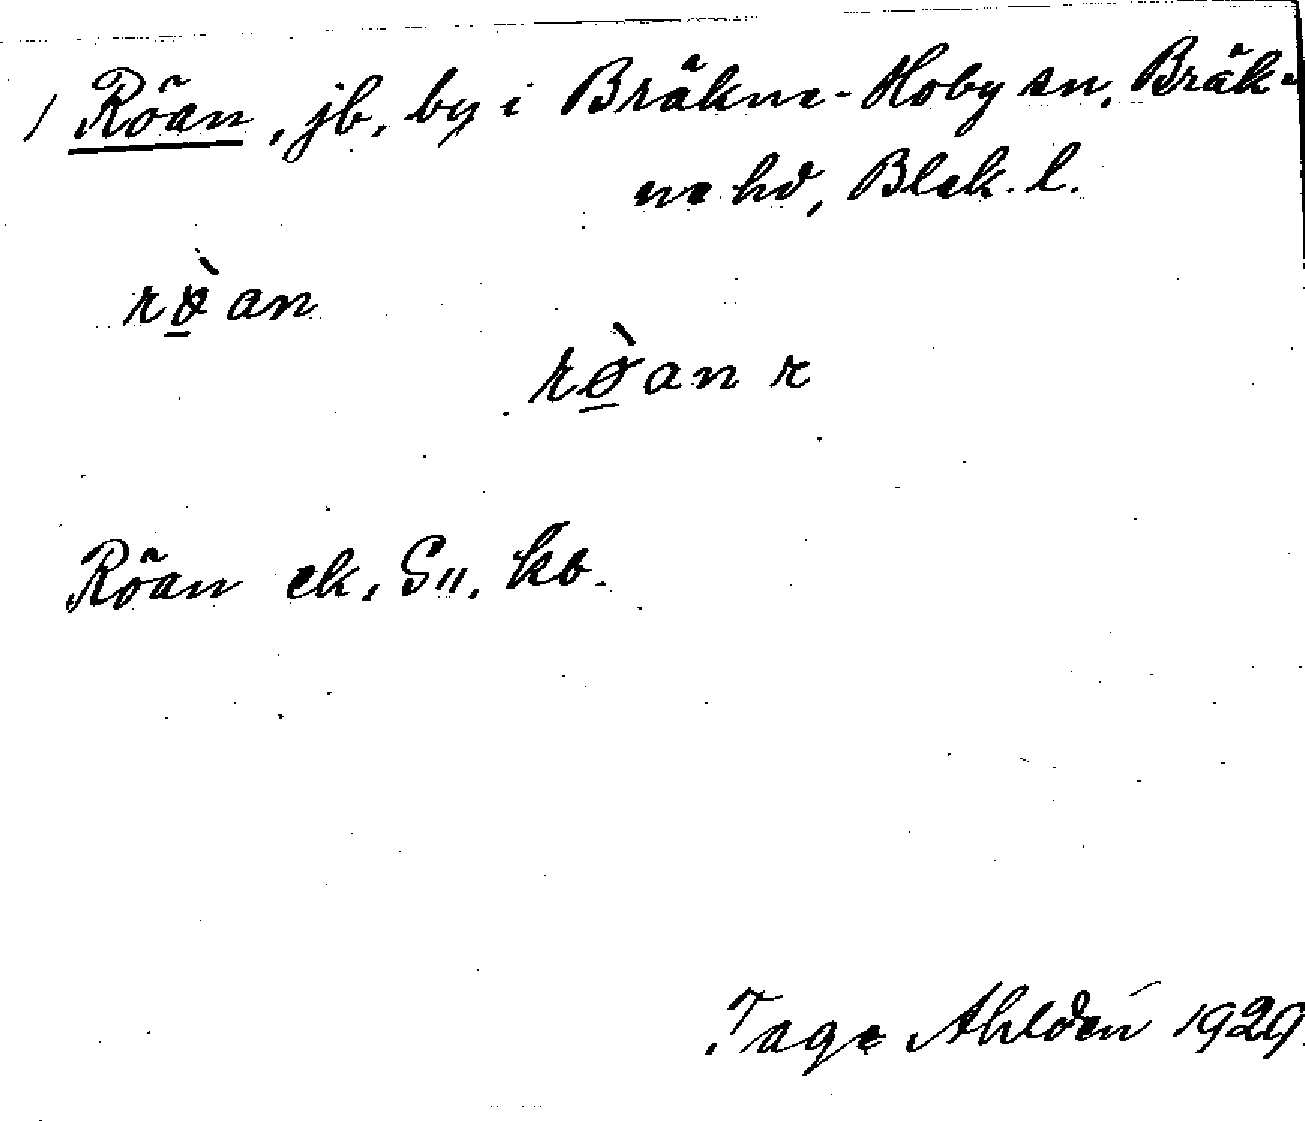 1 Röan, jb, by i Bräkne-Hoby sn, Bräk-
ne hd, Blek. l.
rø̱̀an
rø̱̀an r
Röan ek, G11. kb.
Tage Ahldén 1929.